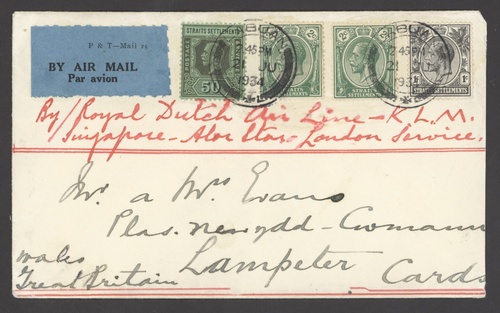 P & T—Mail 25
BY AIR MAIL
Par avion
STRAITS SETTLEMENTS
POSTAGE
50
2c
STRAITS
SETTLEMENTS
2c
STRAITS
SETTLEMENTS
1c 1c
STRAITS SETTLEMENTS
LABUAN
2 45 PM
21 JU
1934
2 45 PM
21 JU
1934
By / Royal Dutch Air Line – K.L.M.
Singapore – Alor Star – London Service.
Mr. a Mrs Evans
Plas. newydd – Cwmann
Lampeter
Wales
Great Britain
Cards